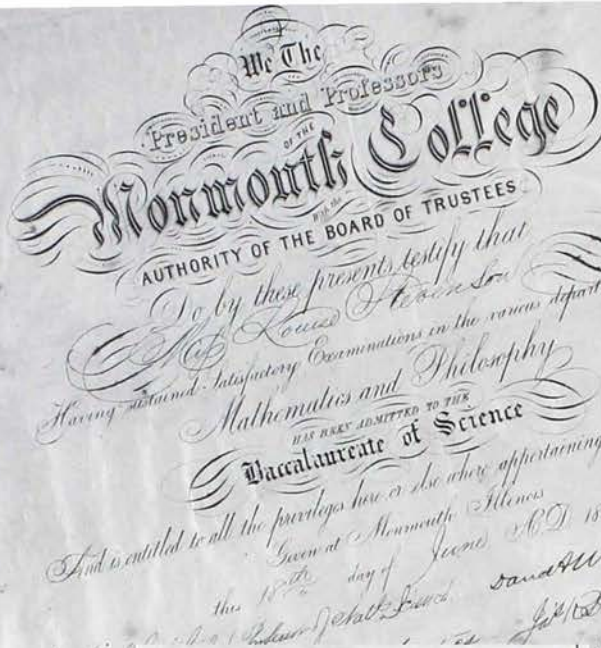 We The
President and Professors
OF THE
Monmouth College
With the
AUTHORITY OF THE BOARD OF TRUSTEES
Do by these presents, testify that
Miss Louise Stevenson
Having sustained Satisfactory Examinations in the various depart
Mathematics and Philosophy
HAS BEEN ADMITTED TO THE
Baccalaureate of Science
And is entitled to all the privileges here or else where appertaining
Given at Monmouth Illinois
this 18th day of June A.D. 18
Professor of Nat. Science David A W
Jas. R